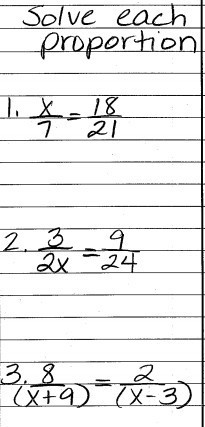 Solve each
proportion
1. x/7 = 18/21
2. 3/2x = 9/24
3. 8/(x+9) = 2/(x-3)